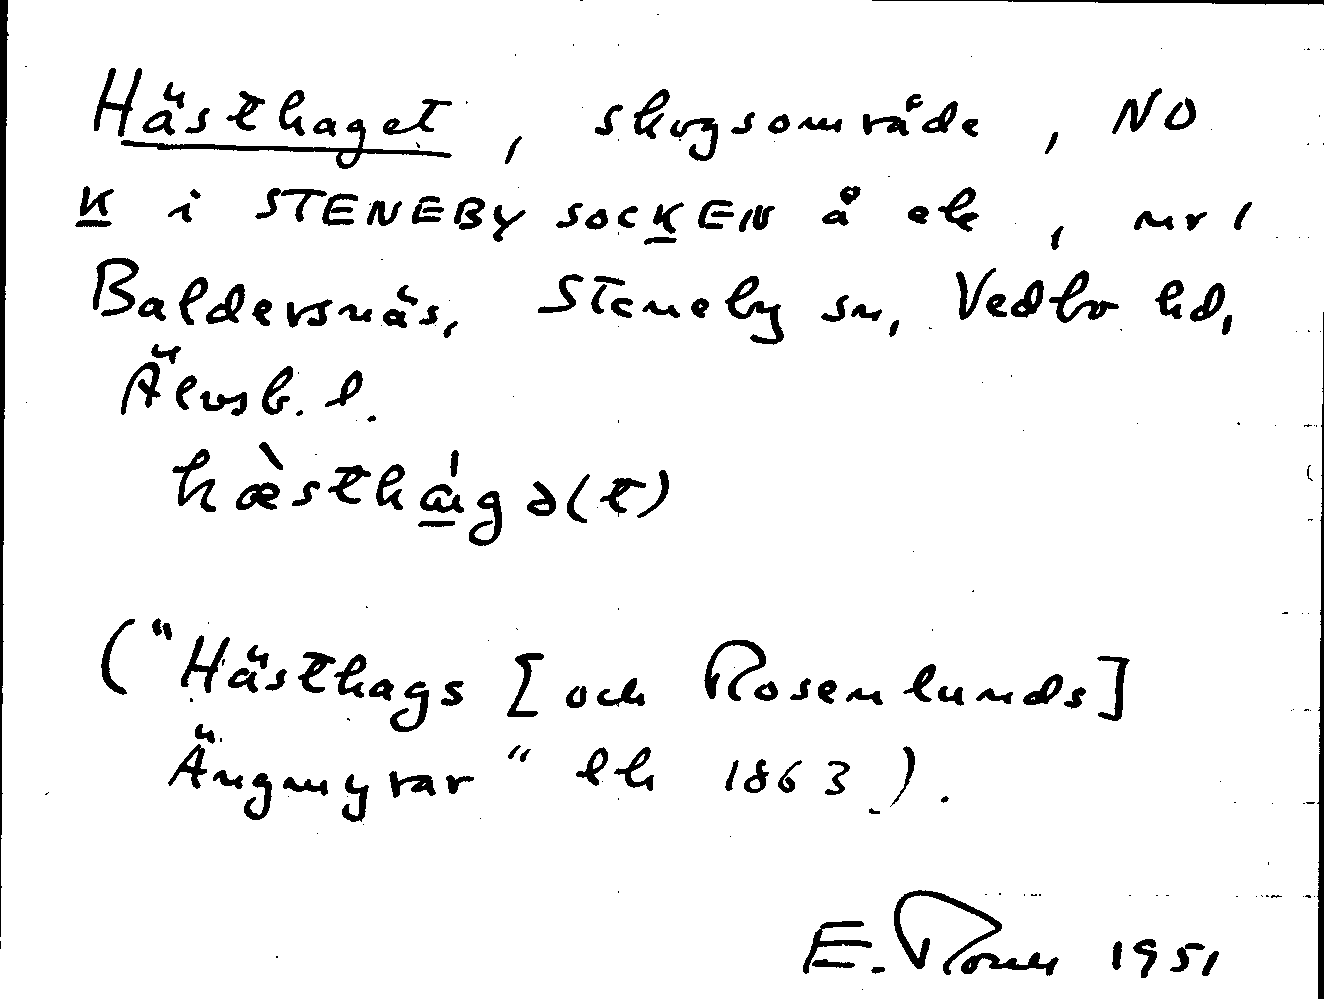 Hästhaget, skogsområde, NO
K i STENEBY SOCKEN å ek, nr 1
Baldersnäs, Steneby sn, Vedbo hd,
Älvsb. l.
hæ̀sthág ə(t)
("Hästhags [och Rosenlunds]
Ängmyrar" lh 1863).
E. 1951